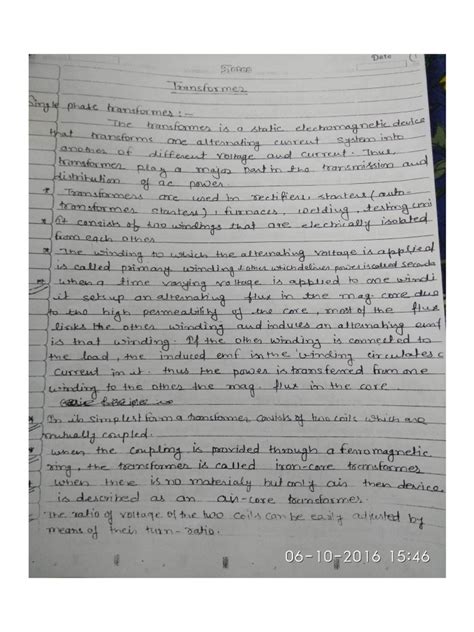 Date
Transformer
Single phase transformer :-
The transformer is a static electromagnetic device
that transforms one alternating current system into
another of different voltage and current. Thus,
transformer play a major part in the transmission and
distribution of ac power.
* Transformers are used in rectifiers, starters (auto-
transformer starters), furnaces, welding, testing
* It consists of two windings that are electrically isolated
from each other
* The winding to which the alternating voltage is applied
is called primary winding & other which delivers power is called
* when a time varying voltage is applied to one windi
it setup an alternating flux in the mag. core due
to the high permeability of the core, most of the flux
links the other winding and induces an alternating emf
is that winding. If the other winding is connected to
the load, the induced emf in the winding circulates
current in it. thus the power is transferred from one
winding to the other the mag. flux in the core.
* In its simplest form a transformer consists of two coils which are
mutually coupled.
* when the coupling is provided through a ferromagnetic
ring, the transformer is called iron-core transformer
when there is no materialy but only air then device
is described as an air-core transformer.
The ratio of voltage of the two coils can be easily adjusted by
means of their turn-ratio.
06-10-2016 15:46